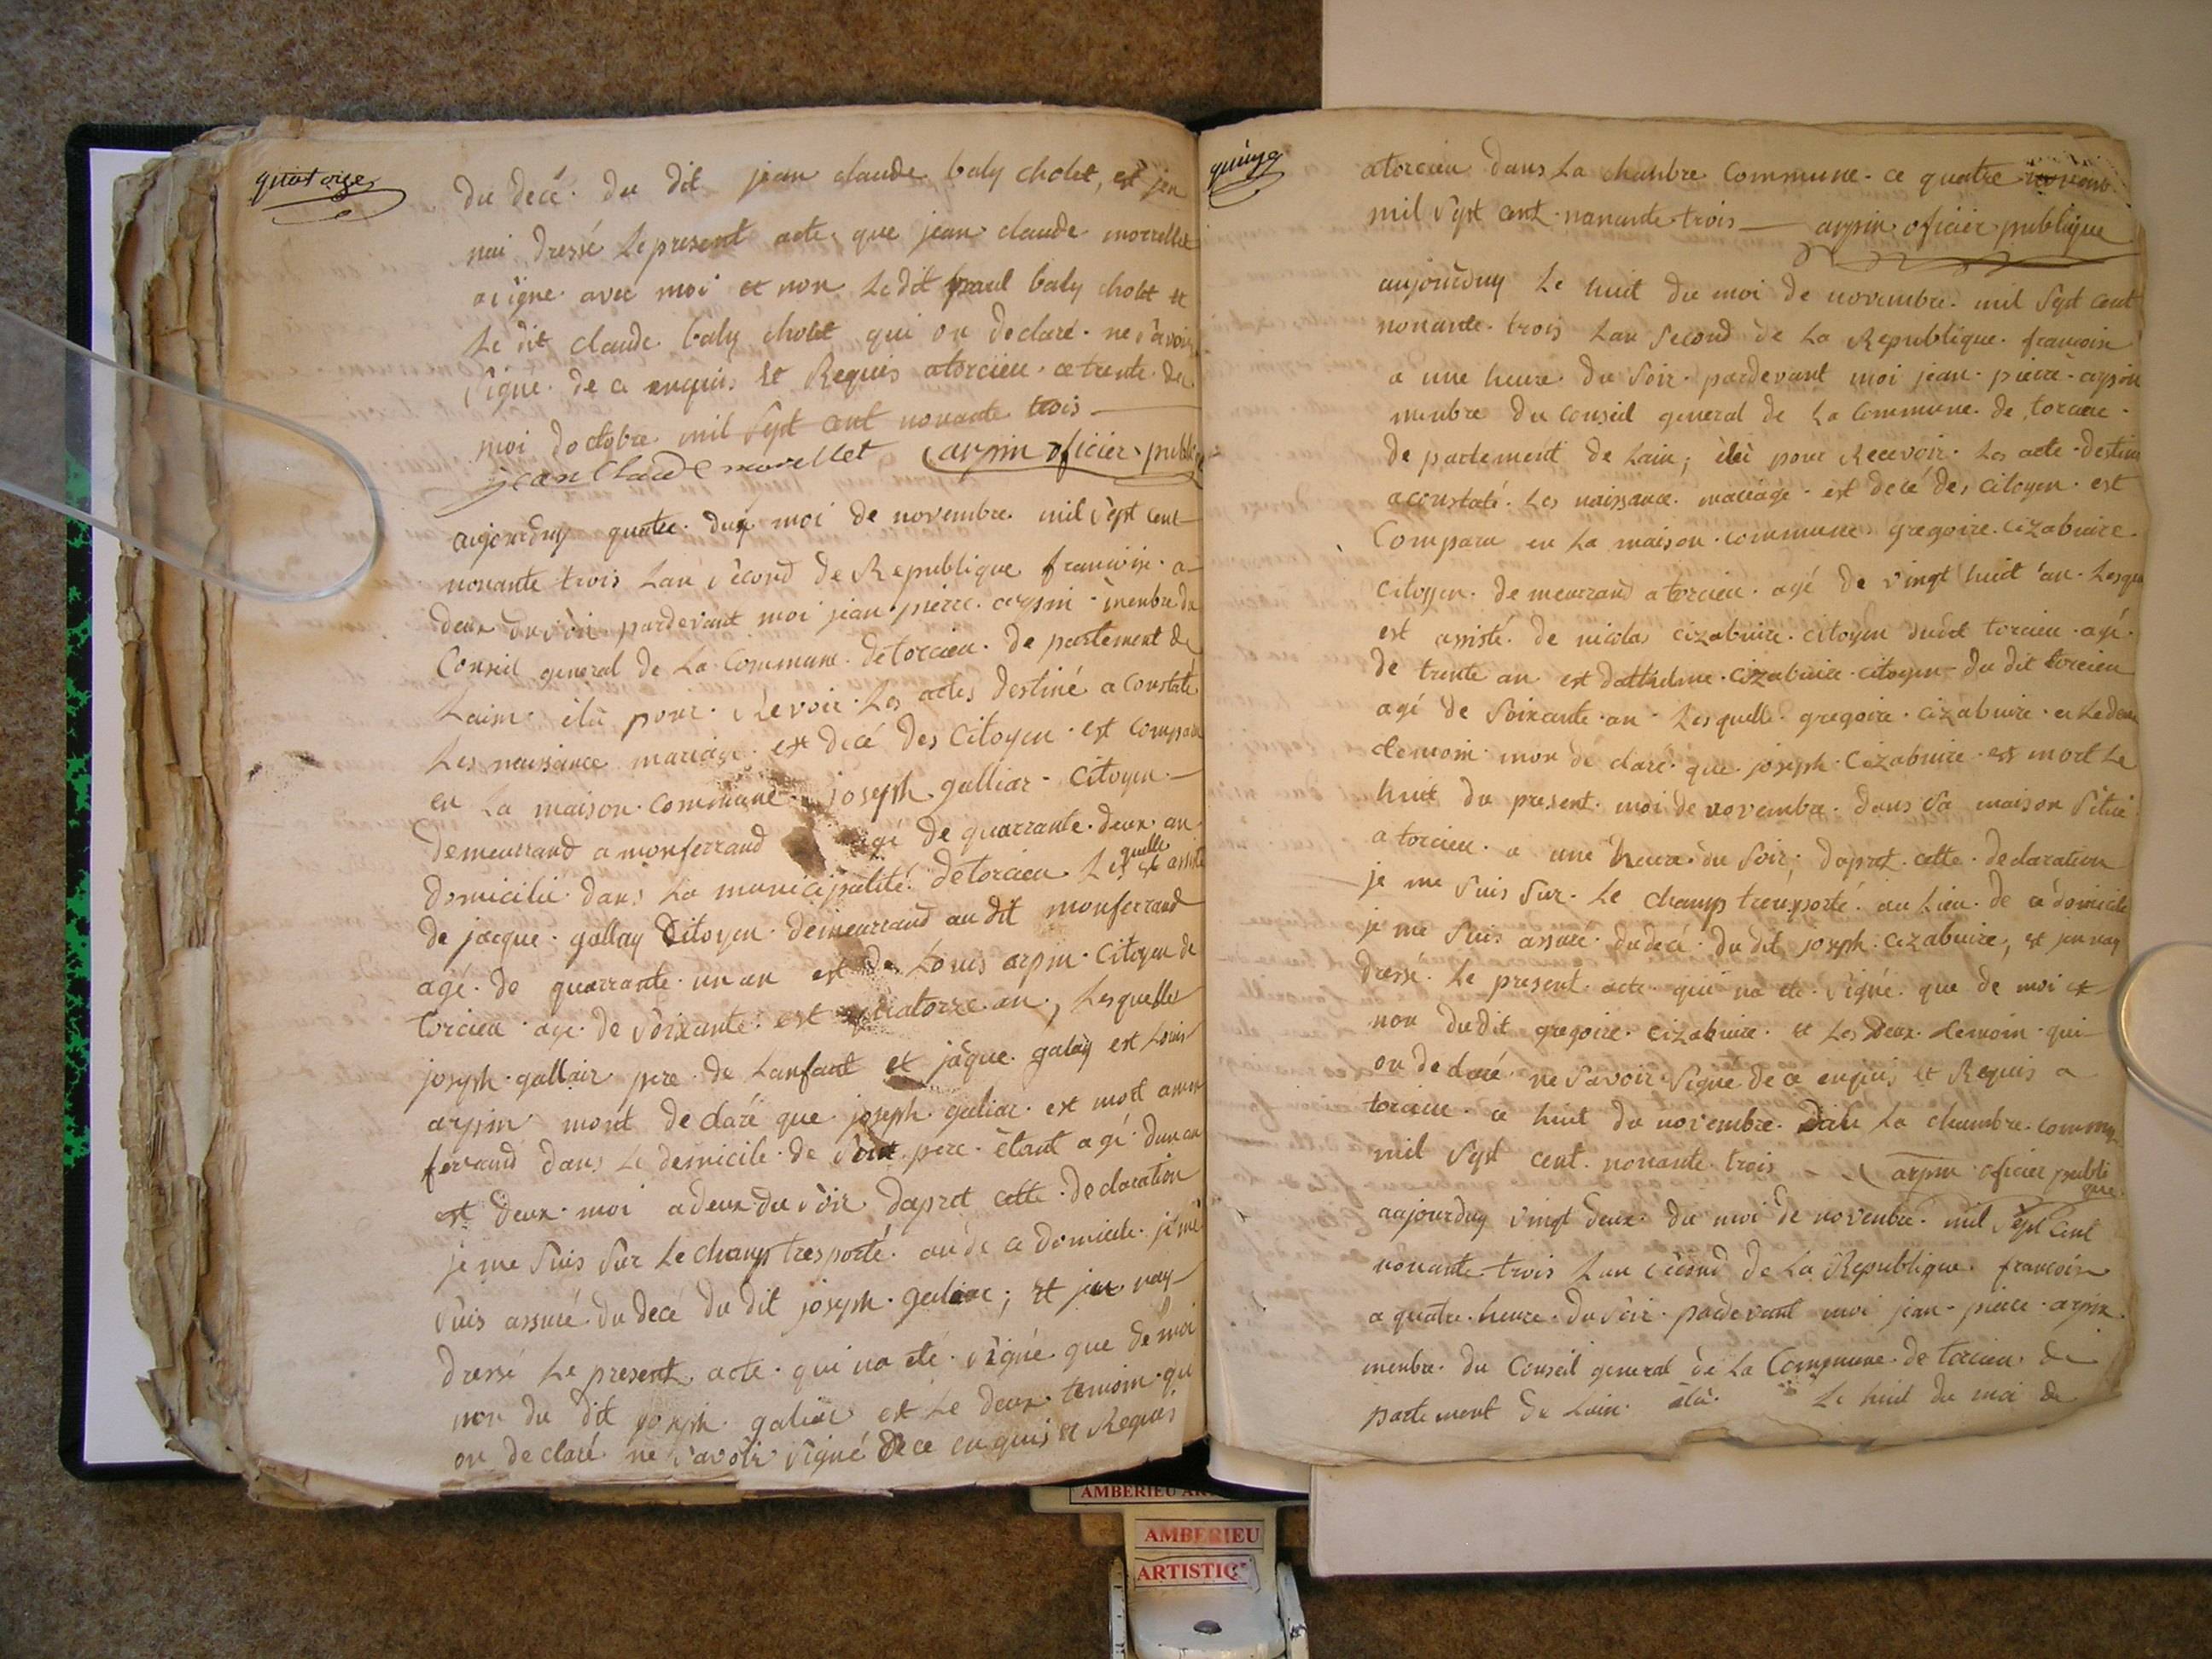 quatorze
du decé. du dit jean claude baly cholet, est jen
nai dressé le present acte que jean claude morrellet
a cigne avec moi et non le dit paul baly cholet et
le dit claude baly cholet qui on declaré ne savoir
signe de ce enquis et Requis a torcieu ce trente du
moi doctobre mil sept cent nonante trois
jean Claude morellet arpin oficier publi
aujourduy quatre du moi de novembre mil sept cent
nonante trois lan second de Republique francoise a
deux du soir pardevant moi jean pierre arpin menbre du
Conseil general de la Commune de torcieu de partement de
Lain élu pour Revoir les actes destiné a constaté
les naissance mariage est decé des Citoyen est compara
en la maison commune joseph galliar Citoyen
demeurrand a monferrand agé de quarrante deux an
domicilié dans la municipalité de torcieu Lesquelle est assisté
de jacque gallay Citoyen demeurrand au dit monferrand
agé de quarrante un an est de Louis arpin Citoyen de
torcieu age de soixante est quatorze an, Lesquelles
joseph gallair pere de lanfant et jaque galay est Louis
arpin mont declaré que joseph galiar est mort amon
ferrand dans le domicile de son pere étant agé dun an
est deux moi a deux du soir dapret cette declaration
je me suis sur le champ tresporté au de ce domicile je me
suis assuré du decé du dit joseph galiar; et jen nay
dressé le present acte qui na eté signé que de moi
non du dit joseph galiar est le deux temoin qui
on declaré ne savoir signé de ce enquis et Requis
quinze
a torcieu dans la chanbre Commune ce quatre novenb
mil sept cent nanante trois arpin oficier publique
aujourduy le huit du moi de novembre mil sept cent
nonante trois lan second de la Republique francoise
a une heure du soir pardevant moi jean pierre arpin
menbre du conseil general de la Commune de torcieu
de partement de Lain; élu pour Recevoir les acte destiné
a constaté les naissance mariage est decé des Citoyen est
Compara en la maison commune gregoire cizabuire
Citoyen demeurrand a torcieu agé de vingt huit an Lesque
est assisté de nicola cizabuire citoyen dudit torcieu agé
de trente an est datthelme cizabuire citoyen du dit torcieu
agé de soixante an Lesquelle gregoire cizabuire et le deux
temoin mon declaré que joseph cizabuire est mort le
huit du present moi de novembre dans sa maison situé
a torcieu a une heure du soir; dapret cette declaration
je me suis sur le champ trensporté au lieu de ce domicile
je me suis assure du decé du dit joseph cizabuire, et jen nay
dressé le present acte qui na eté signé que de moi et
non dudit gregoire cizabuire et les deux temoin qui
on declaré ne savoir signe de ce enquis et Requis a
torcieu ce huit du novembre dans la chambre commu
mil sept cent nonante trois arpin oficier publi
que
aujourduy vingt deux du moi de novenbre mil sept cent
nonante trois lan cecond de la Republique francoise
a quatre heure du soir pardevant moi jean pierre arpin
menbre du Conseil general de la Commune de torcieu de
partement de Lain élu le huit du moi de
AMBERIEU
AMBERIEU
ARTISTIQ